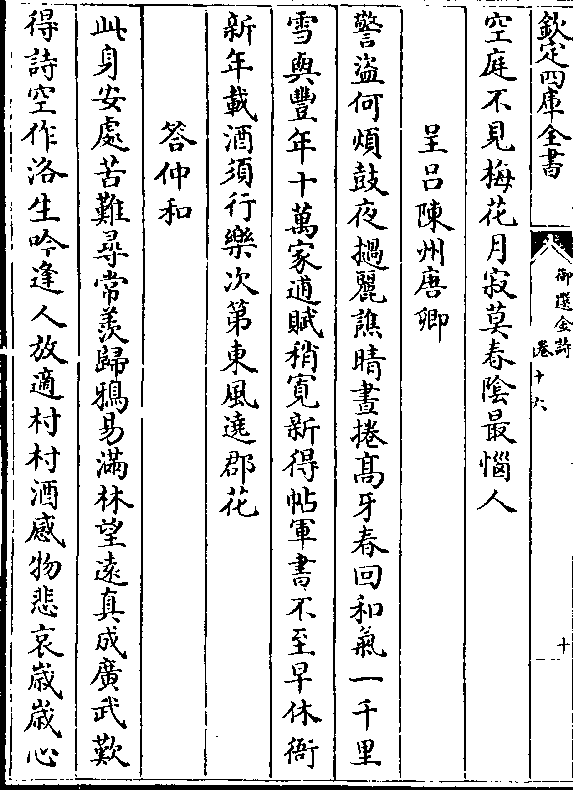 欽定四庫全書
御選金詩
卷十六
十
空庭不見梅花月寂莫春陰最惱人
呈吕陳州唐卿
警盜何煩鼓夜撾麗譙晴晝捲髙牙春回和氣一千里
雪與豐年十萬家逋賦稍寛新得帖軍書不至早休衙
新年載酒須行樂次第東風遶郡花
答仲和
此身安處苦難尋常羨歸鴉易滿林望遠真成廣武歎
得詩空作洛生吟逢人放適村村酒感物悲哀歳歳心